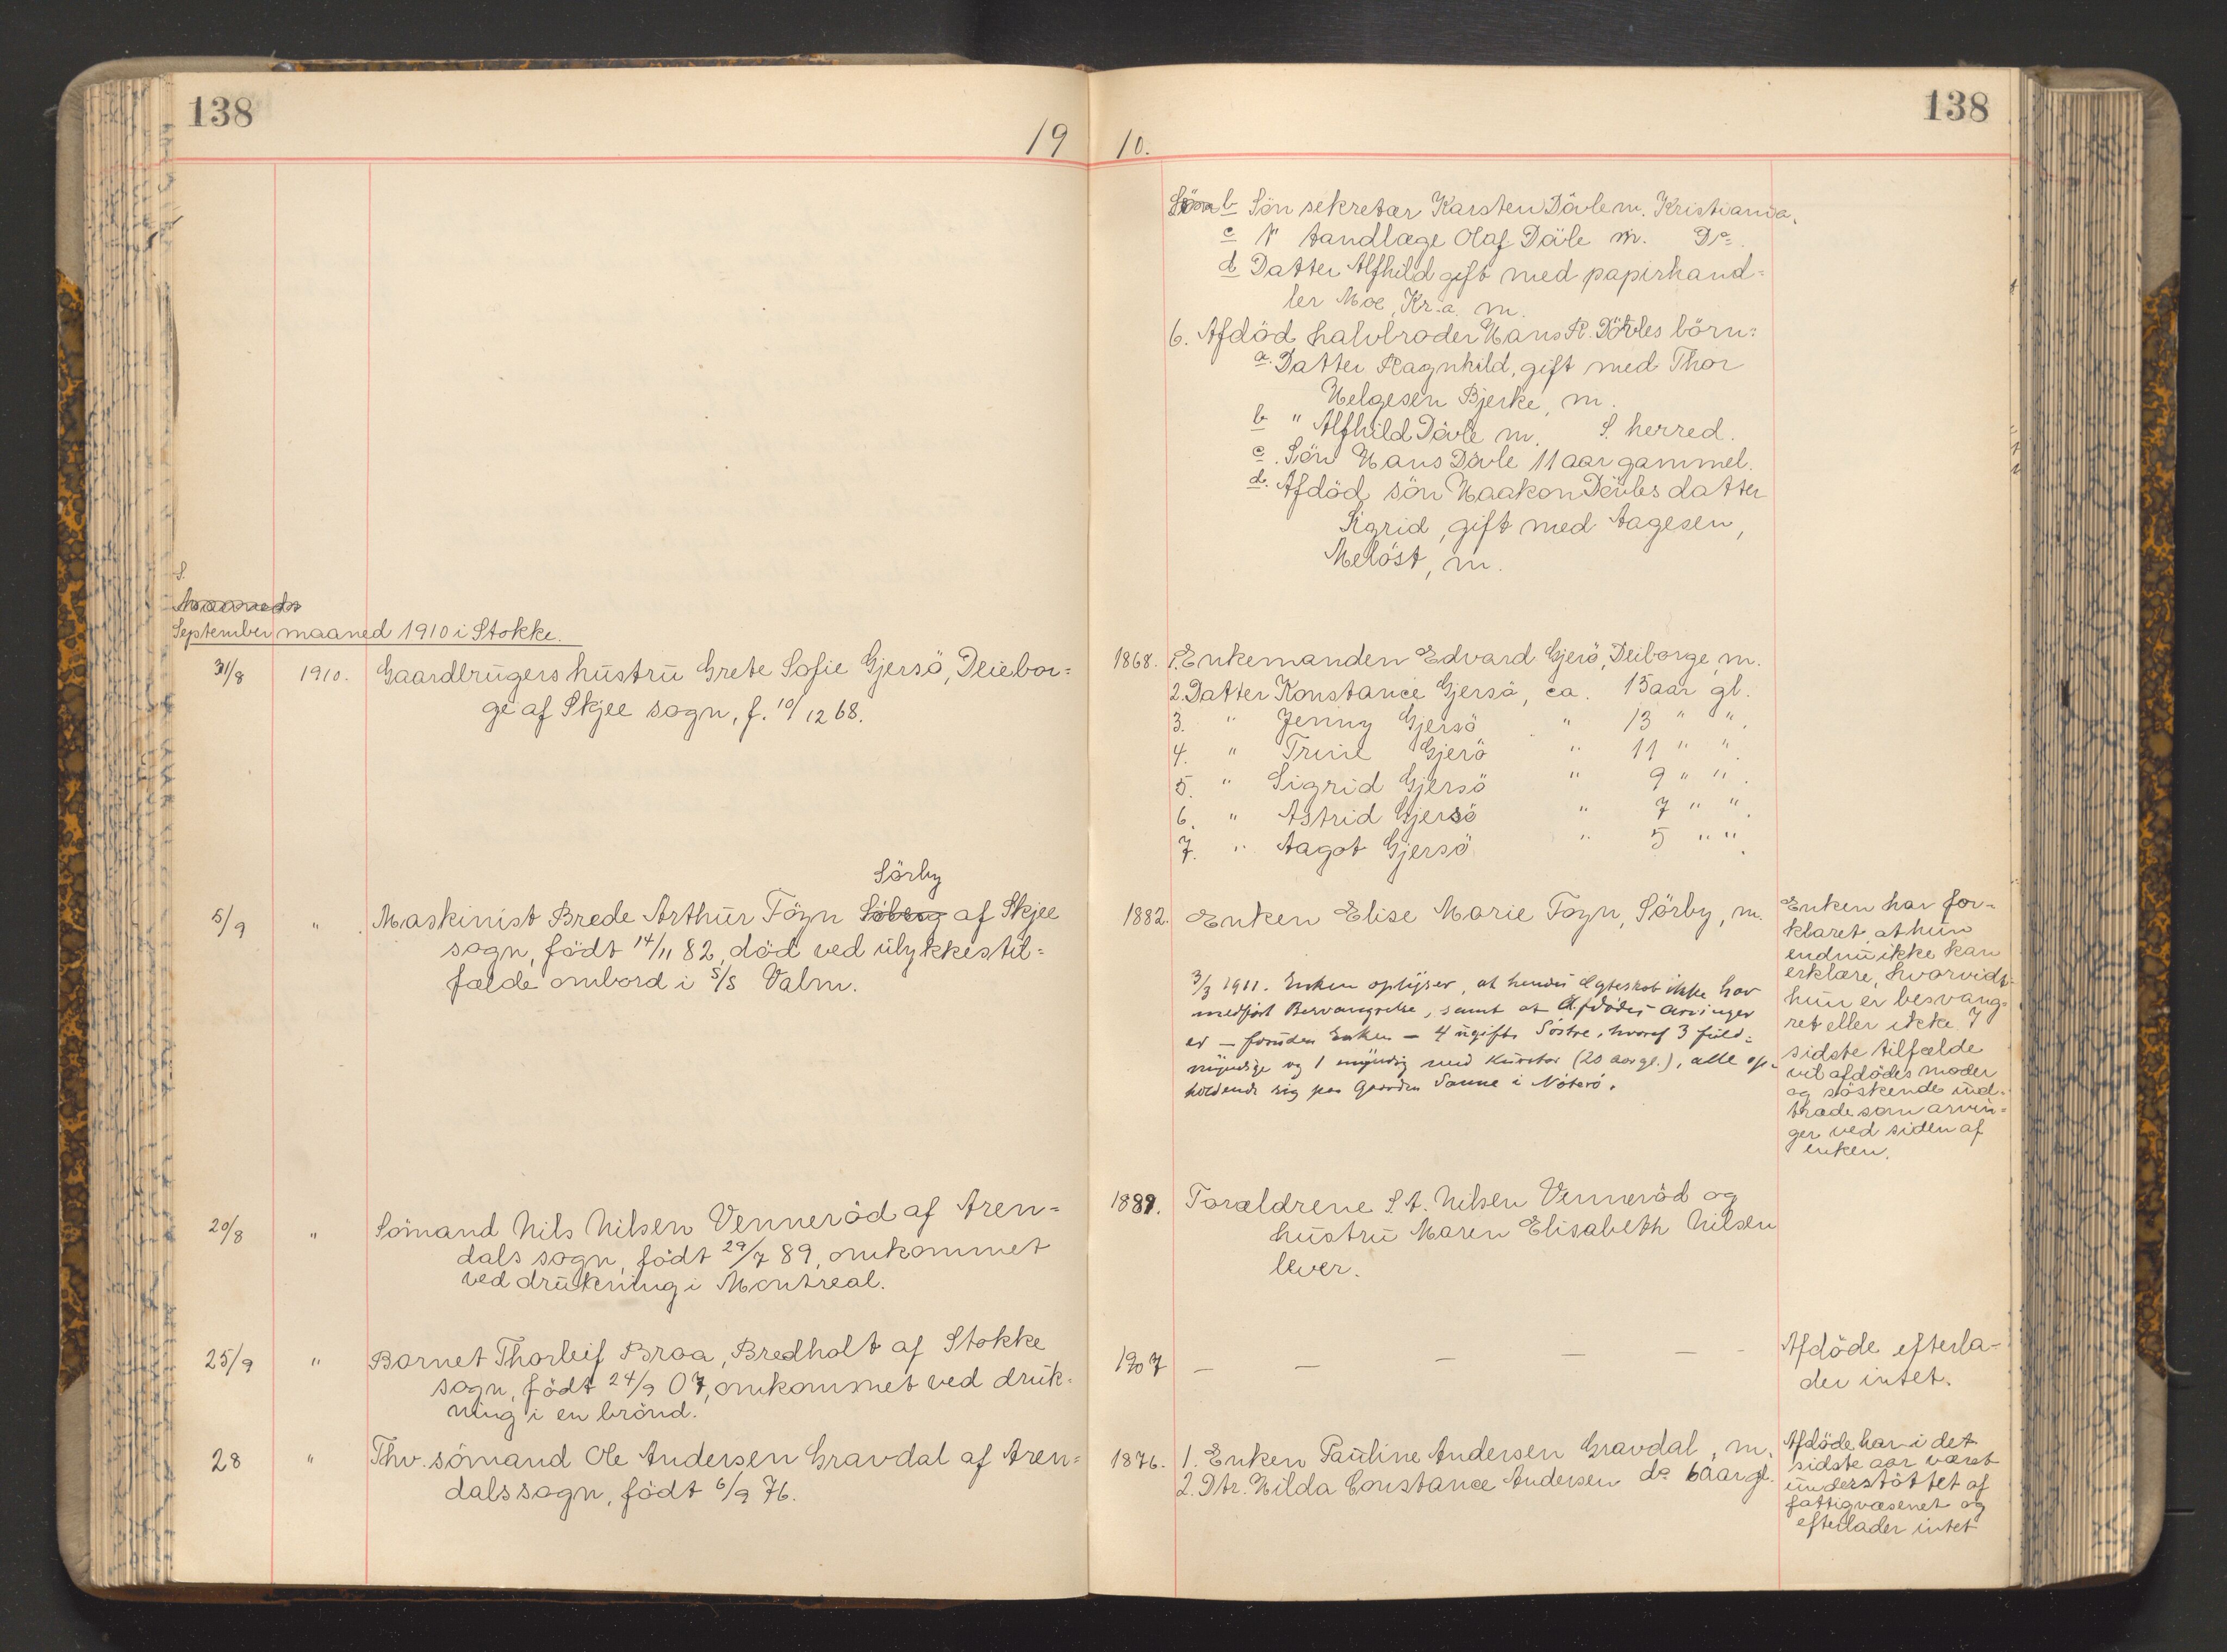 138
138
19 10.
b Sön sekretær Karsten Dävle m. Kristiania.
c " tandlæge Olaf Dävle m. Do
d Datter Alfhild gift med papirhand=
ler Moe, Kr.a. m.
6. Afdöd halvbroder Hans R. Dävles börn:
a. Datter Ragnhild, gift med Thor
Helgesen Bjerke, m.
b " Alfhild Dävle m. S. herred.
c. Sön Hans Dävle 11 aar gammel.
d. Afdöd sön Haakon Dävles datter
Sigrid, gift med Aagesen,
Melöst, m.
S.
September maaned 1910 i Stokke.
31/8 1910. Gaardbrugers hustru Grete Sofie Gjersö, Deiebor=
ge af Skjee sogn, f. 10/12 68.
1868. 1. Enkemanden Edvard Gjerö, Deiborge, m.
2. Datter Konstance Gjersö, ca. 15 aar gl.
3. " Jenny Gjersö " 13 " ".
4. " Trine Gjerö " 11 " ".
5. " Sigrid Gjersö " 9 " ".
6. " Astrid Gjersö " 7 " ".
7. " Aagot Gjersö " 5 " ".
Sörby
5/9 " Maskinist Brede Arthur Föyn Söberg af Skjee
sogn, födt 14/11 82, död ved ulykkestil=
fælde ombord i S/S Valm.
1882. Enken Elise Marie Foyn, Sörby, m.
3/3 1911. Enken oplyser, at hendes Ægteskab ikke har
medfört Besvangrelse, samt at Afdödes arvinger
er – foruden Enken – 4 ugifte Söstre, hvoraf 3 fuld=
myndige og 1 myndig med Kurator (20 aar gl.), alle op=
holdende sig paa Gaarden Sanne i Nöterö.
Enken har for=
klaret, at hun
endnu ikke kan
erklære, hvorvidt
hun er besvang=
ret eller ikke. I
sidste tilfælde
vil afdödes moder
og söskende ind=
træde som arvin=
ger ved siden af
enken.
20/8 " Sömand Nils Nilsen Venneröd af Aren=
dals sogn, födt 29/7 89, omkommet
ved drukning i Montreal.
1889. Forældrene S. A. Nilsen Venneröd og
hustru Maren Elisabeth Nilsen
lever.
25/9 " Barnet Thorleif Braa, Bredholt af Stokke
sogn, födt 24/9 07, omkommet ved druk=
ning i en brönd.
1907 – – – – –
Afdöde efterla=
der intet.
28 " Thv. sömand Ole Andersen Gravdal af Aren=
dals sogn, födt 6/9 76.
1876. 1. Enken Pauline Andersen Gravdal, m.
2. Dtr. Hilda Constance Andersen do 6 aar gl.
Afdöde har i det
sidste aar været
understöttet af
fattigvæsenet og
efterlader intet